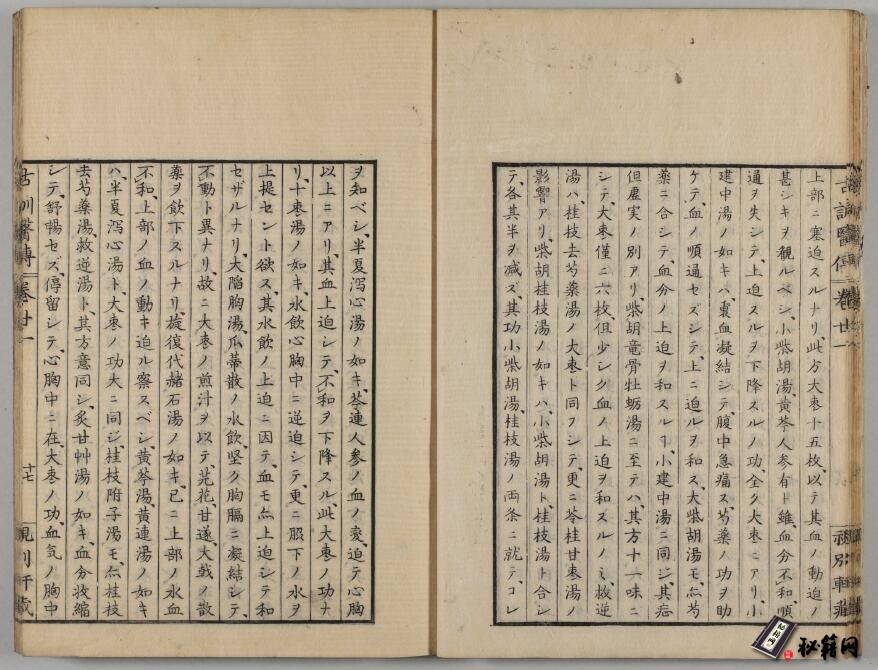 上部ニ塞迫スルナリ、此方大棗十五枚、以テ其血ノ動迫ノ
甚シキヲ観ルベシ、小柴胡湯、黄芩人参有ト雖、血分不和、順
通ヲ失シテ、上迫スルヲ下降スルノ功、全ク大棗ニアリ、小
建中湯ノ如キハ、裏血凝結シテ、腹中急痛ス、芍薬ノ功ヲ助
ケテ、血ノ順通セズシテ、上ニ迫ルヲ和ス、大柴胡湯モ、亦芍
薬ニ合シテ、血分ノ上迫ヲ和スルヿ、小建中湯ニ同ジ、其
但虚実ノ別アリ、柴胡竜骨牡蛎湯ニ至テハ、其方十一味ニ
シテ、大棗僅ニ六枚、但少シク血ノ上迫ヲ和スルノミ、救逆
湯ハ、桂枝去芍薬湯ノ大棗ト同フシテ、更ニ苓桂甘棗湯ノ
影響アリ、柴胡桂枝湯ノ如キハ、小柴胡湯ト、桂枝湯ト合シ
テ、各其半ヲ減ズ、其功小柴胡湯、桂枝湯ノ両条ニ就テ、コレ
ヲ知ベシ、半夏瀉心湯ノ如キ、芩連人参ノ血ノ変、迫テ心胸
以上ニアリ、其血上迫シテ、不和ヲ下降スル、此大棗ノ功ナ
リ、十棗湯ノ如キ、水飲心胸中ニ逆迫シテ、更ニ服下ノ水ヲ
上提セント欲ス、其水飲ノ上迫ニ因テ、血モ亦上迫シテ和
セザルナリ、大陥胸湯、瓜蒂散ノ水飲、堅ク胸膈ニ凝結シテ、
不動ト異ナリ、故ニ大棗ノ煎汁ヲ以テ、芫花、甘遂、大戟ノ散
薬ヲ飲下スルナリ、旋復代赭石湯ノ如キ、已ニ上部ノ水血
不和、上部ノ血ノ動キ迫ル察スベシ、黄芩湯、黄連湯ノ如キ
ハ、半夏瀉心湯ト、大棗ノ功大ニ同ジ、桂枝附子湯モ、亦桂枝
去芍薬湯、救逆湯ト、其方意同シ、炙甘艸湯ノ如キ、血分收縮
シテ、舒暢セズ、停留シテ、心胸中ニ在、大棗ノ功、血気ノ胸中
古訓醫傳 巻廿一
十七
秘籍网